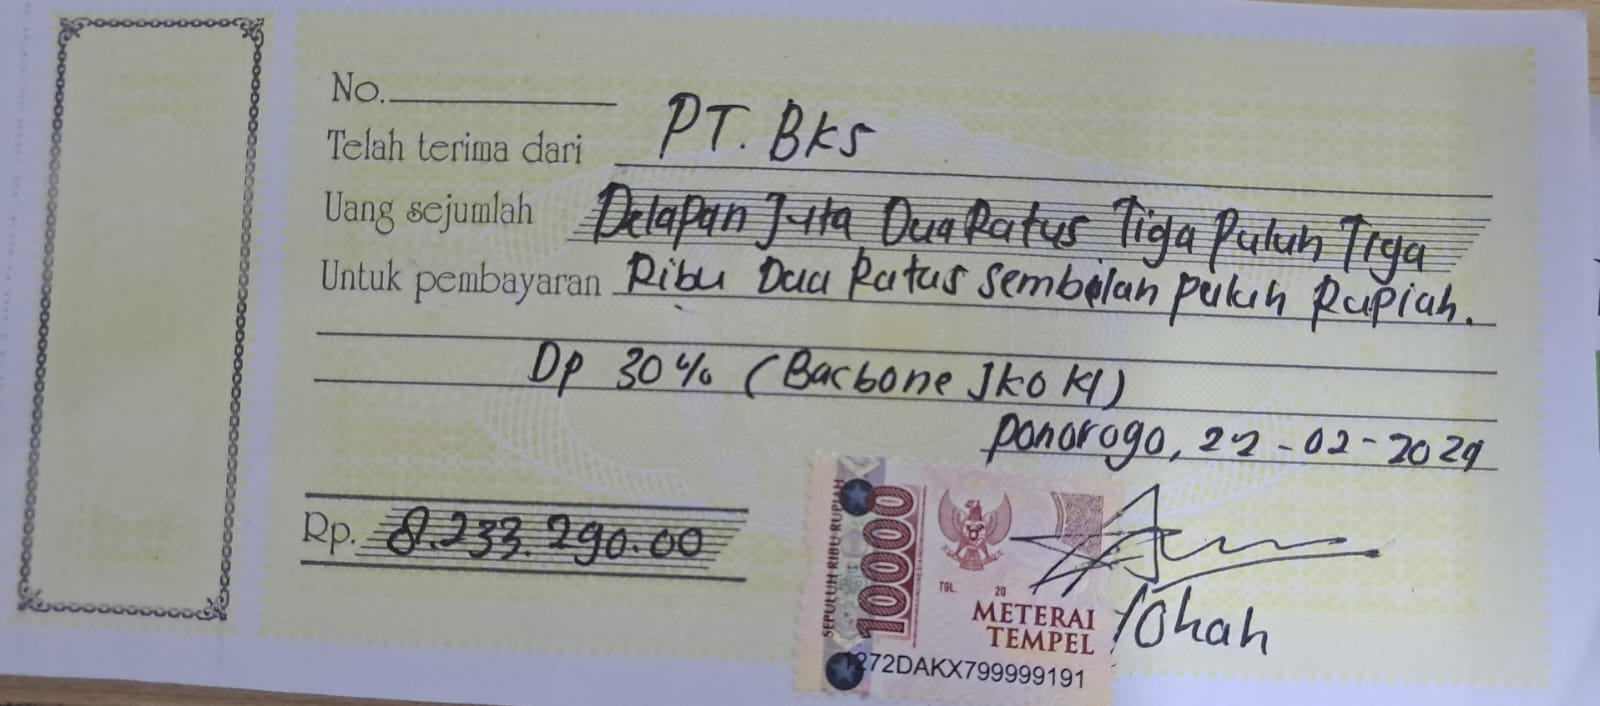 No.
Telah terima dari PT. BKS
Uang sejumlah Delapan Juta Dua Ratus Tiga Puluh Tiga
Untuk pembayaran Ribu Dua Ratus Sembilan puluh Rupiah.
Dp 30% (Bacbone Jko KI)
Ponorogo, 22-02-2024
Rp. 8.233.290.00
SEPULUH RIBU RUPIAH
10000
TGL. 20
METERAI
TEMPEL
1272DAKX799999191